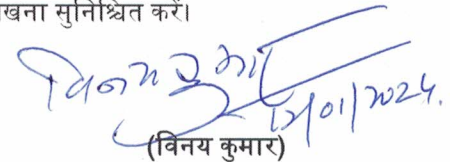 खना सुनिश्चित करें।
विनय कुमार
12/01/2024.
(विनय कुमार)